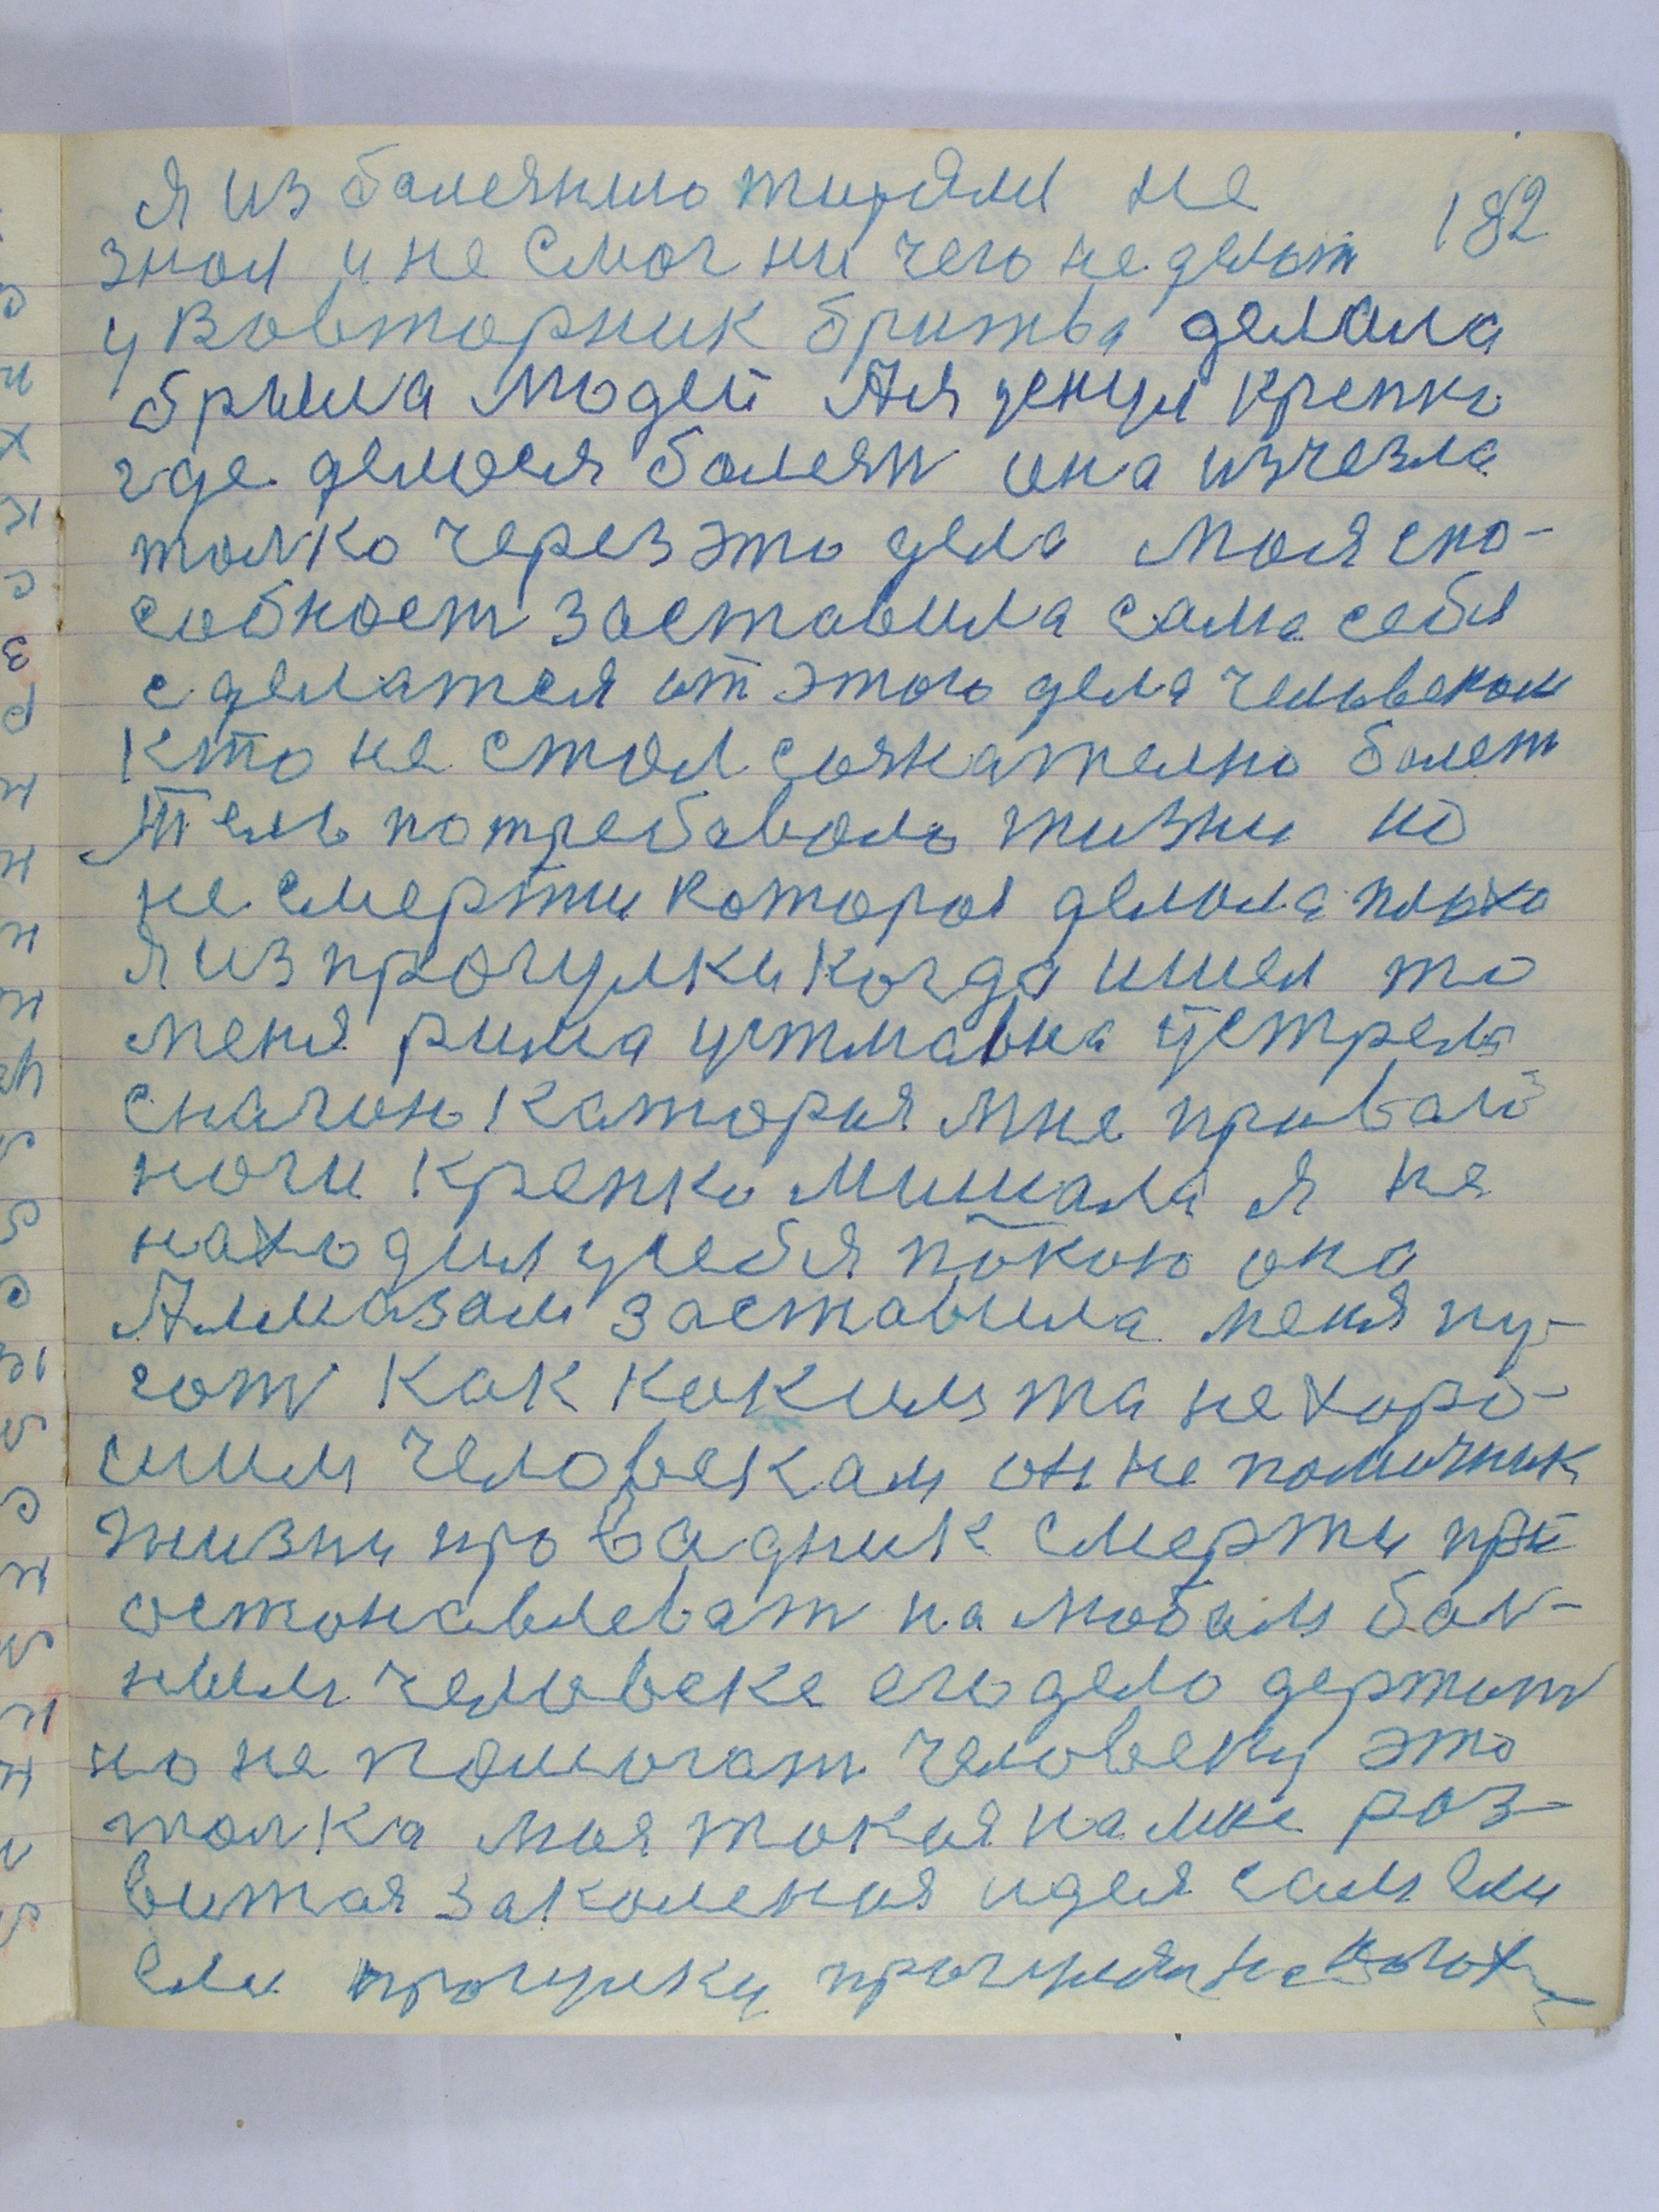 182
я из болеянию тирями не
знал и не смог ни чего не делат
у Вовторник бритва делала
брила людей Аля денул крепко
где делося болеян она изчезла
толко через это дела моя спо-
собност заставила сама себя
сделатся от этого дела человеком
кто не стал сознателно болет
тело потребавало жизни но
не смерти которая делала плохо
я из прогулки когда ишел то
меня рима устиавна устрела
снагою каторыя мне првалй
ноги крепко мишала я не
находил у себя покою она
Алмазам заставила меня пу-
гат как каким та не хоро-
шим человекам он не помичник
жизни про вадник смерти при
останавлеват на любом бал-
ним человеке его дело держит
но не помогат человеку это
толка моя такая на мне роз-
витая закаленая идея сам ем
ем прогулку прогулян